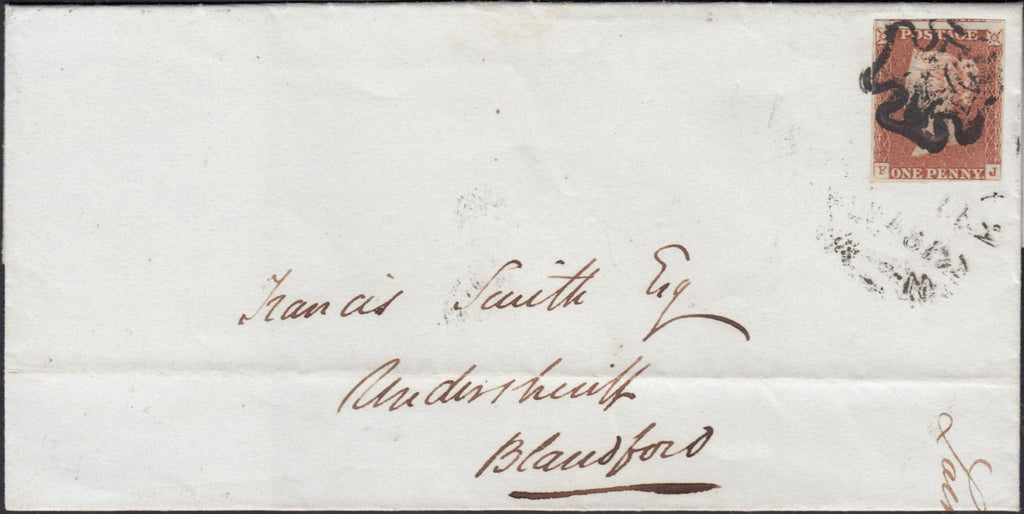 POSTAGE
F ONE PENNY. J
Francis Smith Esq
Undersheriff
Blandford